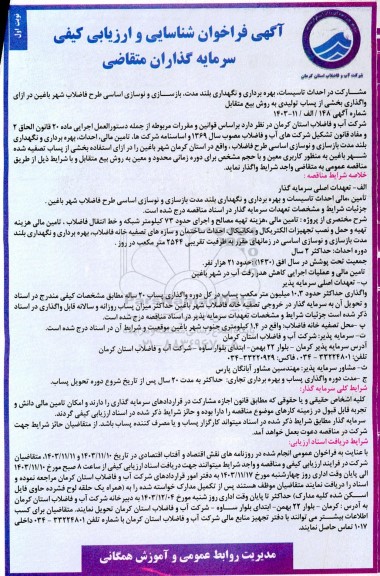 نوبت اول
آگهی فراخوان شناسایی و ارزیابی کیفی
سرمایه گذاران متقاضی
شرکت آب و فاضلاب استان کرمان
مشـارکت در احداث تاسیسات، بهره برداری و نگهداری بلند مدت، بازسـازی و نوسازی اساسی طرح فاضلاب شهر باغین در ازای
واگذاری بخشی از پساب تولیدی به روش بیع متقابل
شماره آگهی ۱۴۸ / الف / ۱۱-۱۴۰۳
شرکت آب و فاضلاب استان کرمان در نظر دارد براساس قوانین و مقررات مربوطه از جمله دستورالعمل اجرایی ماده ۲۰ قانون الحاق ۲
و مفاد قانون تشکیل شرکت های آب و فاضلاب مصوب سال ۱۳۶۹ و اساسنامه شرکت ها، تامین مالی، احداث، تاسیسات، بهره برداری و نگهداری
بلند مدت بازسازی و نوسازی اساسی طرح فاضلاب ، واقع در استان کرمان شهر باغین را در ازای استفاده بخشی از پساب تصفیه شده
شـهر باغین به منظور کاربری معین و با حجم مشخص برای دوره زمانی محدود و معین به روش بیع متقابل و با شرایط ذیل از طریق
مناقصه عمومی به متقاضی واجد شرایط واگذار نماید.
خلاصه شرایط مناقصه :
الف- تعهدات اصلی سرمایه گذار
تامین ،مالی احداث تاسیسات و بهره برداری و نگهداری بلند مدت بازسازی و نوسازی اساسی طرح فاضلاب شهر باغین .
جزئیات شرایط و مشخصات تعهدات سرمایه گذار در اسناد مناقصه درج شده است.
شرح مختصری از پروژه : تامین مالی هزینه تهیه مصالح و اجرای حدود ۷۲ کیلومتر شبکه و خط انتقال فاضلاب ، تامین مالی هزینه
تهیه و حمل و نصب تجهیزات الکتریکال و مکانیکال، احداث ساختمان و سازه های تصفیه خانه فاضلاب، بهره برداری و نگهداری بلند
مدت بازسازی و نوسازی اساسی در زمانهای مقرر، به ظرفیت تقریبی ۲۵۴۴ متر مکعب در روز .
دوره احداث: حداکثر ۲ سال
جمعیت تحت پوشش در سال افق (۱۴۳۰): حدود ۲۱ هزار نفر.
تامین مالی و عملیات اجرایی کاهش هدررفت آب در شهر باغین
ب- تعهدات اصلی سرمایه پذیر
واگذاری حداکثر ۱۰.۳ میلیون متر مکعب پساب در کل دوره واگذاری پساب ۲۰ ساله مطابق مشخصات کیفی مندرج در اسناد
و تحویل آن به سرمایه گذار در خروجی تصفیه خانه فاضلاب شهر باغین حداکثر میزان پساب روزانه و سالانه قابل واگذاری در اسناد
ذکر شده است جزئیات شرایط و مشخصات تعهدات سرمایه پذیر در اسناد مناقصه درج شده است.
پ -محل تصفیه خانه فاضلاب: واقع در ۱.۴ کیلومتری جنوب شهر باغین موقعیت و شرایط آن در اسناد درج شده است.
ت- سرمایه پذیر: شرکت آب و فاضلاب استان کرمان
آدرس سرمایه پذیر: کرمان - بلوار ۲۲ بهمن- ابتدای بلوار ساوه - شرکت آب و فاضلاب استان کرمان
تلفن: ۳۳۲۲۴۸۰۱ - ۰۳۴ ، فاکس: ۳۳۲۲۰۹۲۹-۰۳۴
ث- مشاور سرمایه پذیر: مهندسین مشاور آبانگان پارس
ج -مدت دوره واگذاری پساب و بهره برداری تجاری: حداکثر به مدت ۲۰ سال پس از تاریخ شروع دوره تحویل پساب.
شرایط کلی سرمایه گذار:
کلیه اشخاص حقیقی و یا حقوقی که مطابق قانون اجازه مشارکت در قراردادهای سرمایه گذاری را دارند و امکان تامین مالی دانش و
تجربه قابل قبول در زمینه کارهای موضوع مناقصه را دارا بوده و حائز شرایط ذکر شده در اسناد ارزیابی کیفی گردند.
سرمایه گذار مطابق شرایط ذکر شده در اسناد میتواند کارگزار پساب و یا مصرف کننده پساب باشد. از متقاضیان حائز شرایط جهت
شرکت در مناقصه دعوت بعمل خواهد آمد.
شرایط دریافت اسناد ارزیابی:
با عنایت به فراخوان عمومی انجام شده در روزنامه های نقش اقتصاد و آفتاب اقتصادی در تاریخ ۱۴۰۳/۱۱/۱۰ و ۱۴۰۳/۱۱/۱۱، متقاضیان
شرکت در فرایند ارزیابی کیفی و مناقصه و واجد شرایط میتوانند جهت دریافت اسناد ارزیابی کیفی از ساعت ۸ صبح مورخ ۱۴۰۳/۱۱/۱۰
الی پایان وقت اداری روز چهارشنبه مورخ ۱۴۰۳/۱۱/۱۷ به دفتر امور قراردادهای شرکت آب و فاضلاب استان کرمان مراجعه نموده و
اسناد را دریافت نمایند متقاضیان موظف هستند پس از تکمیل مدارک خواسته شده را به همراه یک حلقه لوح فشرده حاوی فایل
اسکن شده کلیه مدارک) حداکثر تا پایان وقت اداری روز شنبه مورخ ۱۴۰۳/۱۲/۰۴ به دبیرخانه شرکت آب و فاضلاب استان کرمان
به آدرس : کرمان - بلوار ۲۲ بهمن-ابتدای بلوار ساوه - شرکت آب و فاضلاب استان کرمان تحویل نمایند. متقاضیان برای کسب
اطلاعات بیشتر می توانند با دفتر تجهیز منابع مالی شرکت آب و فاضلاب استان کرمان با شماره تلفن ۳۳۲۲۴۸۰۱-۰۳۴ داخلی
۱۰۱۷ تماس حاصل نمایند.
مدیریت روابط عمومی و آموزش همگانی